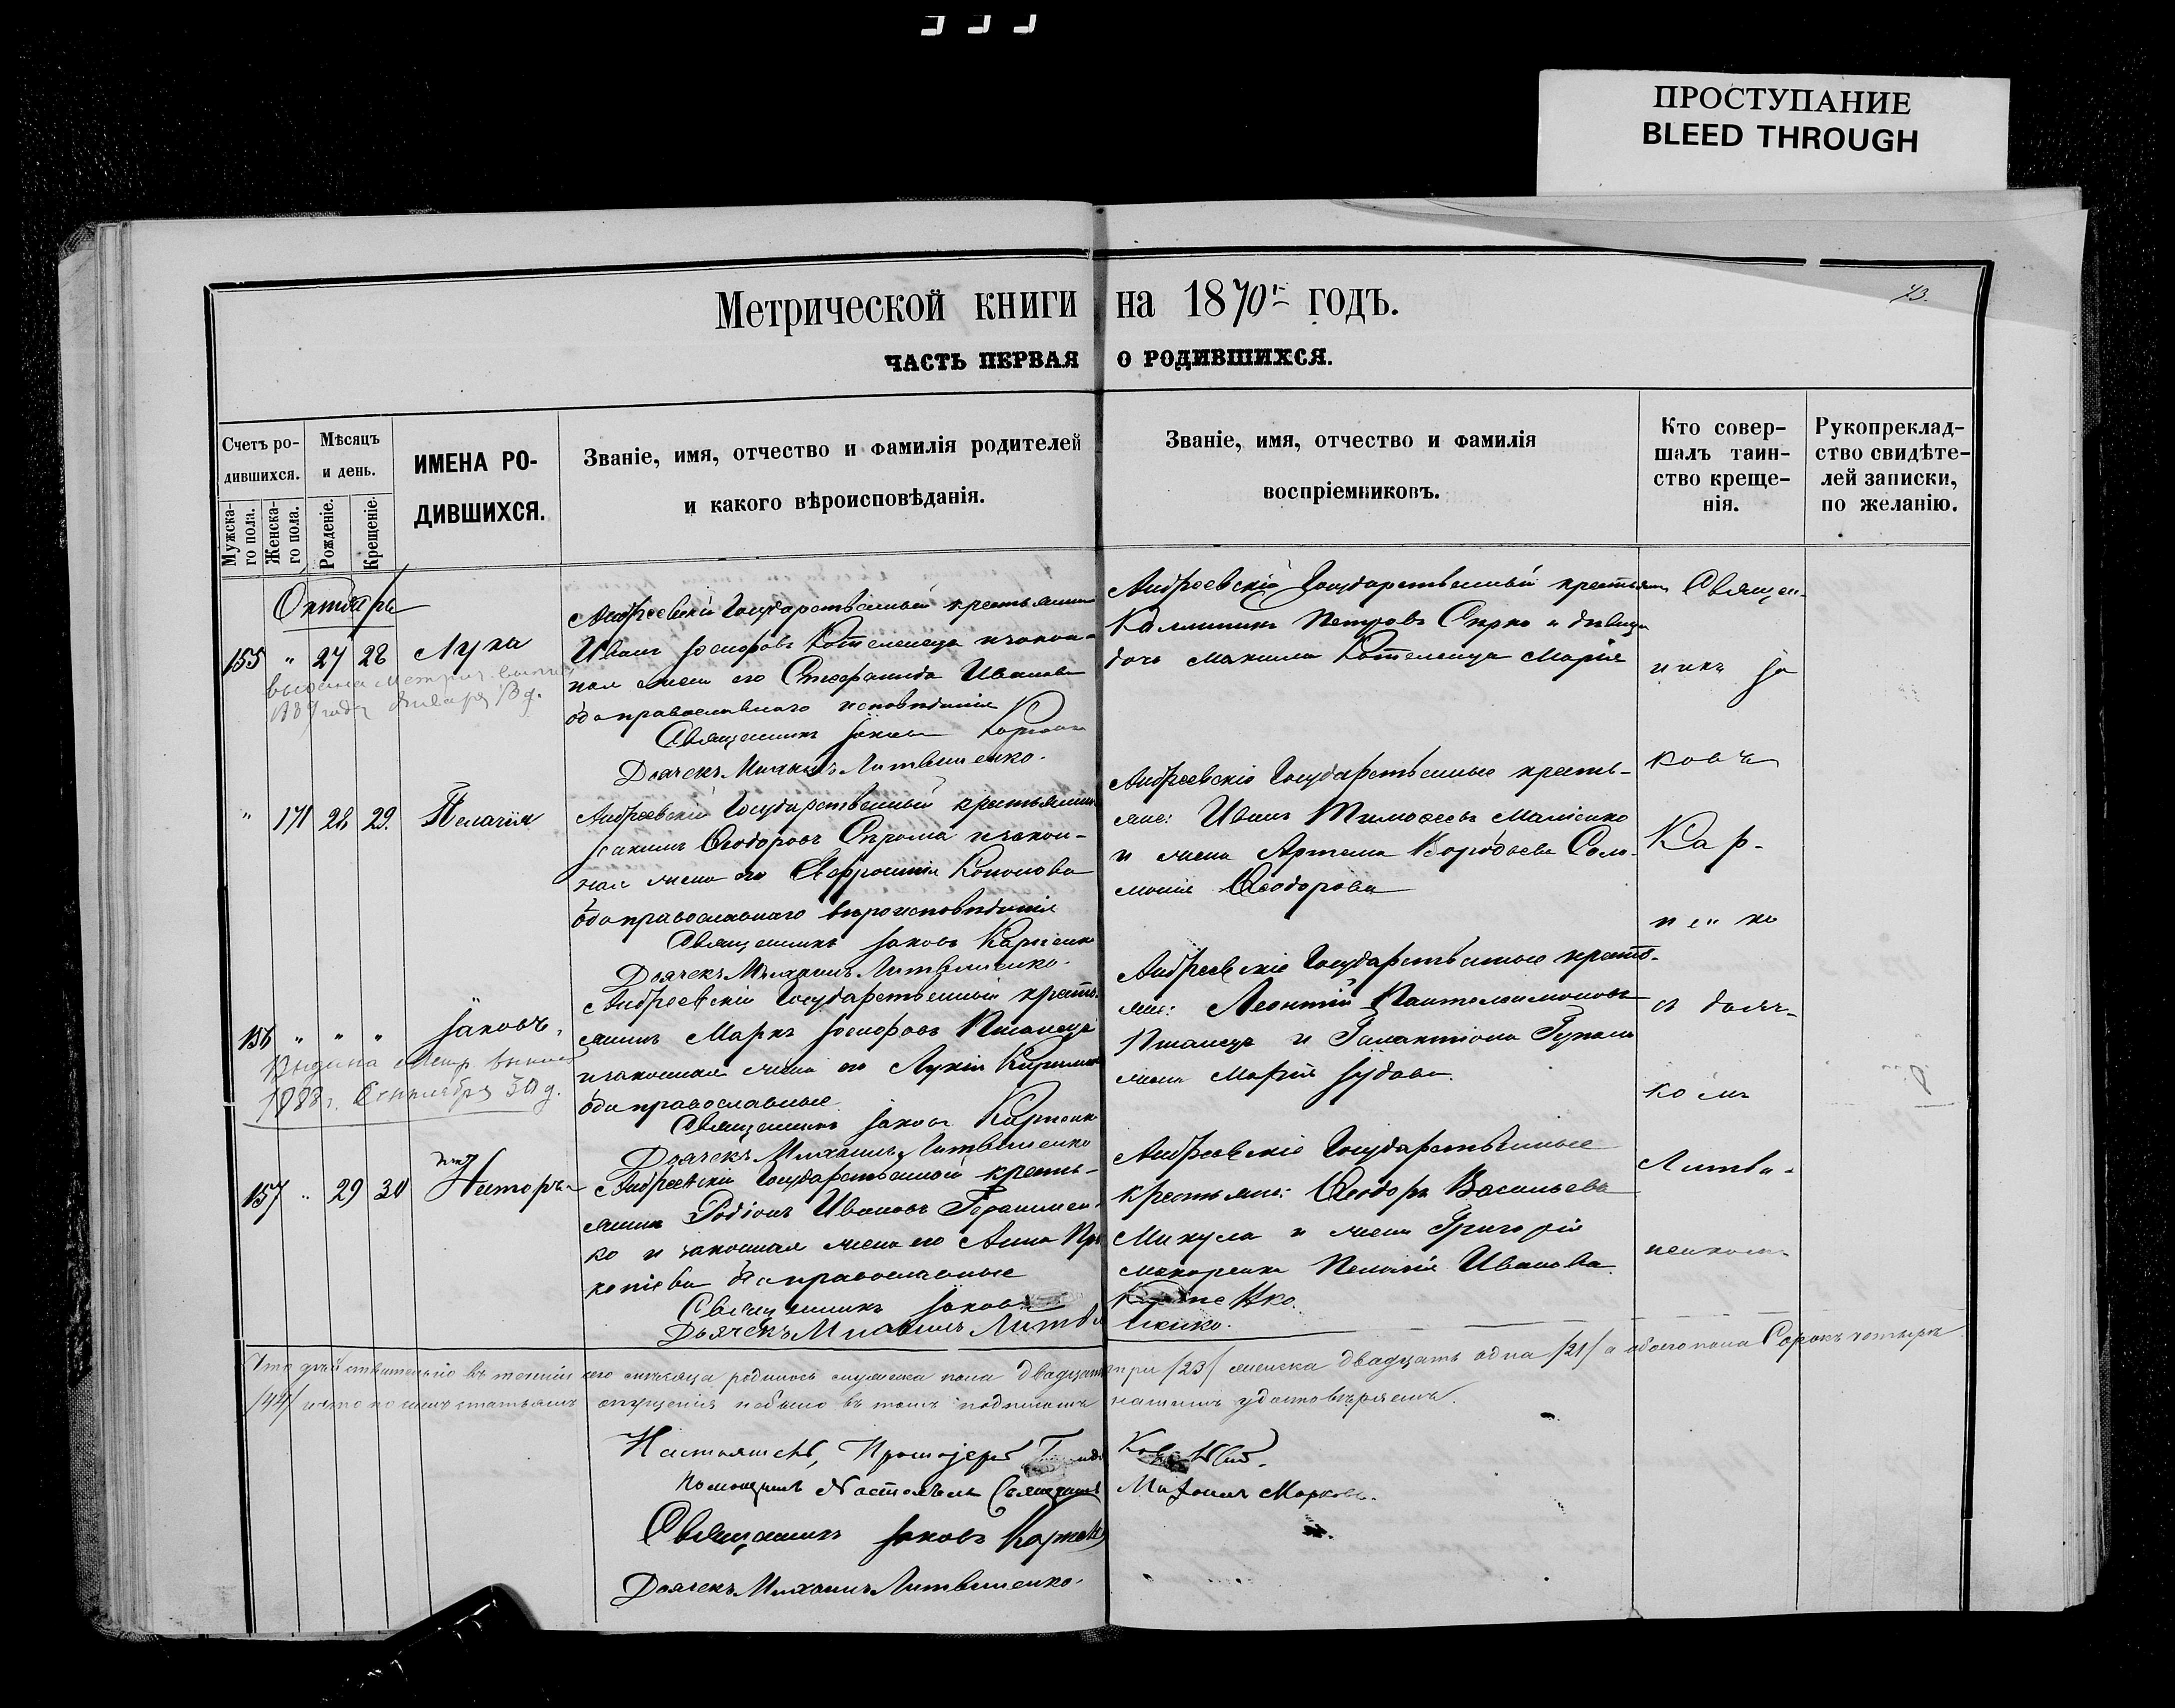 ПРОСТУПАНИЕ
BLEED THROUGH
73.
Метрической книги на 1870 годъ.
ЧАСТЬ ПЕРВАЯ О РОДИВШИХСЯ.
Счетъ ро-
дившихся.
Мужска-
го пола.
Женска-
го пола.
Мѣсяцъ
и день.
Рожденіе.
Крещеніе.
ИМЕНА РО-
ДИВШИХСЯ.
Званіе, имя, отчество и фамилія родителей
и какого вѣроисповѣданія.
Званіе, имя, отчество и фамилія
воспріемниковъ.
Кто совер-
шалъ таин-
ство креще-
нія.
Рукопреклад-
ство свидѣте-
лей записки,
по желанію.
Октябрь
155 " 27 28 Лука
Андреевскій Государственный крестьянинъ
Иванъ Іосифовъ Котеленецъ и закон-
ная жена его Стефанида Иванова
оба православнаго исповѣданія
Священникъ Іаковъ
Дьячекъ Михаилъ Литвиненко.
Андреевскій Государственный крестьянинъ
Каллиникъ Петровъ Сирко и дѣвица
дочь Котеленца Марія
" 171 28 29. Пелагія
Андреевскій Государственный крестьянинъ
Іакимъ Ѳеодоровъ и закон-
ная жена его Евфросинія Кононова
оба православнаго вѣроисповѣданія
Священникъ Іаковъ Карпенко
Дьячекъ Михаилъ Литвиненко.
Андреевскіе Государственные кресть-
яне: Иванъ Тимоѳеевъ
и жена Артема Воробьева Соло-
монія Ѳеодорова
156 " " " Іаковъ.
Андреевскій Государственный кресть-
янинъ Маркъ Іосифовъ
и законная жена его Лукія
оба православные
Священникъ Іаковъ Карпенко
Дьячекъ Михаилъ Литвиненко
Андреевскіе Государственные кресть-
яне: Леонтій Пантелеимоновъ
и Галактіона
жена Марія Іудова.
1888 г. Сентября 30 д.
157 " 29 30 Несторъ
Андреевскій Государственный кресть-
янинъ Родіонъ Ивановъ Герасимен-
ко и законная жена его Анна Про-
копіева оба православные
Священникъ Іаковъ Карпенко.
Дьячекъ Михаилъ Литвиненко.
Андреевскіе Государственные
крестьяне: Ѳеодоръ Васильевъ
Микула и жена Григорія
Макаренка Пелагія Иванова.
Священ-
никъ Іа
ковъ
Кар-
пенко
съ дьяч-
комъ
Литви-
ненком
Что дѣйствительно въ теченіи сего мѣсяца родилось мужеска пола двадцать три /23/ женска двадцать одна /21/ а обоего пола Сорокъ четыре
/44/ и что по симъ статьямъ опущенія небыло въ томъ подписомъ нашимъ удостовѣряемъ.
Настоятель, Протоіерей
Помощникъ Настоятеля Священникъ Марковъ.
Священникъ Іаковъ Карпенко
Дьячекъ Михаилъ Литвиненко.